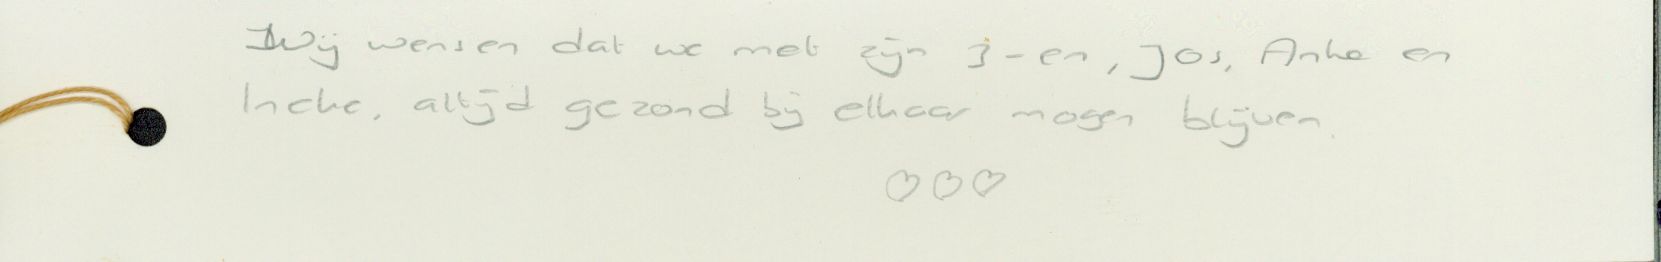 Wij wensen dat we met zijn 3-en, Jos, Anke en
Ineke, altijd gezond bij elkaar mogen blijven.
♡♡♡